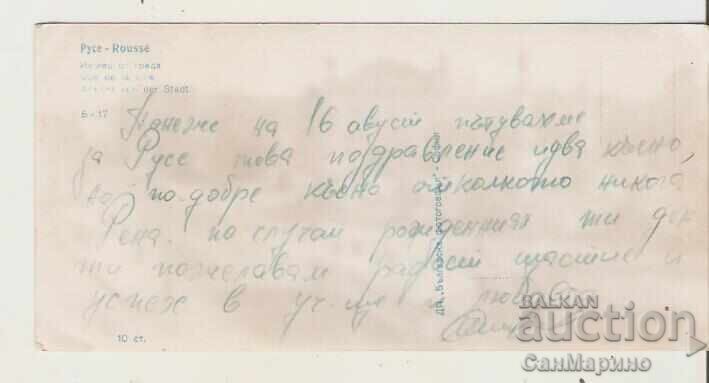 Русе - Rousse
Изглед от града
Vue de la ville
der Stadt
Б - 17
Понеже на 16 август пътувахме
за Русе това поздравление идва късно,
но по-добре късно отколкото никога
Рена. по случай рождения ти ден
ти пожелавам радост щастие и
успех в уч-ще и любовта
ДП „Българска фотография" - София
10 ст.
BALKAN
auction
СанМарино